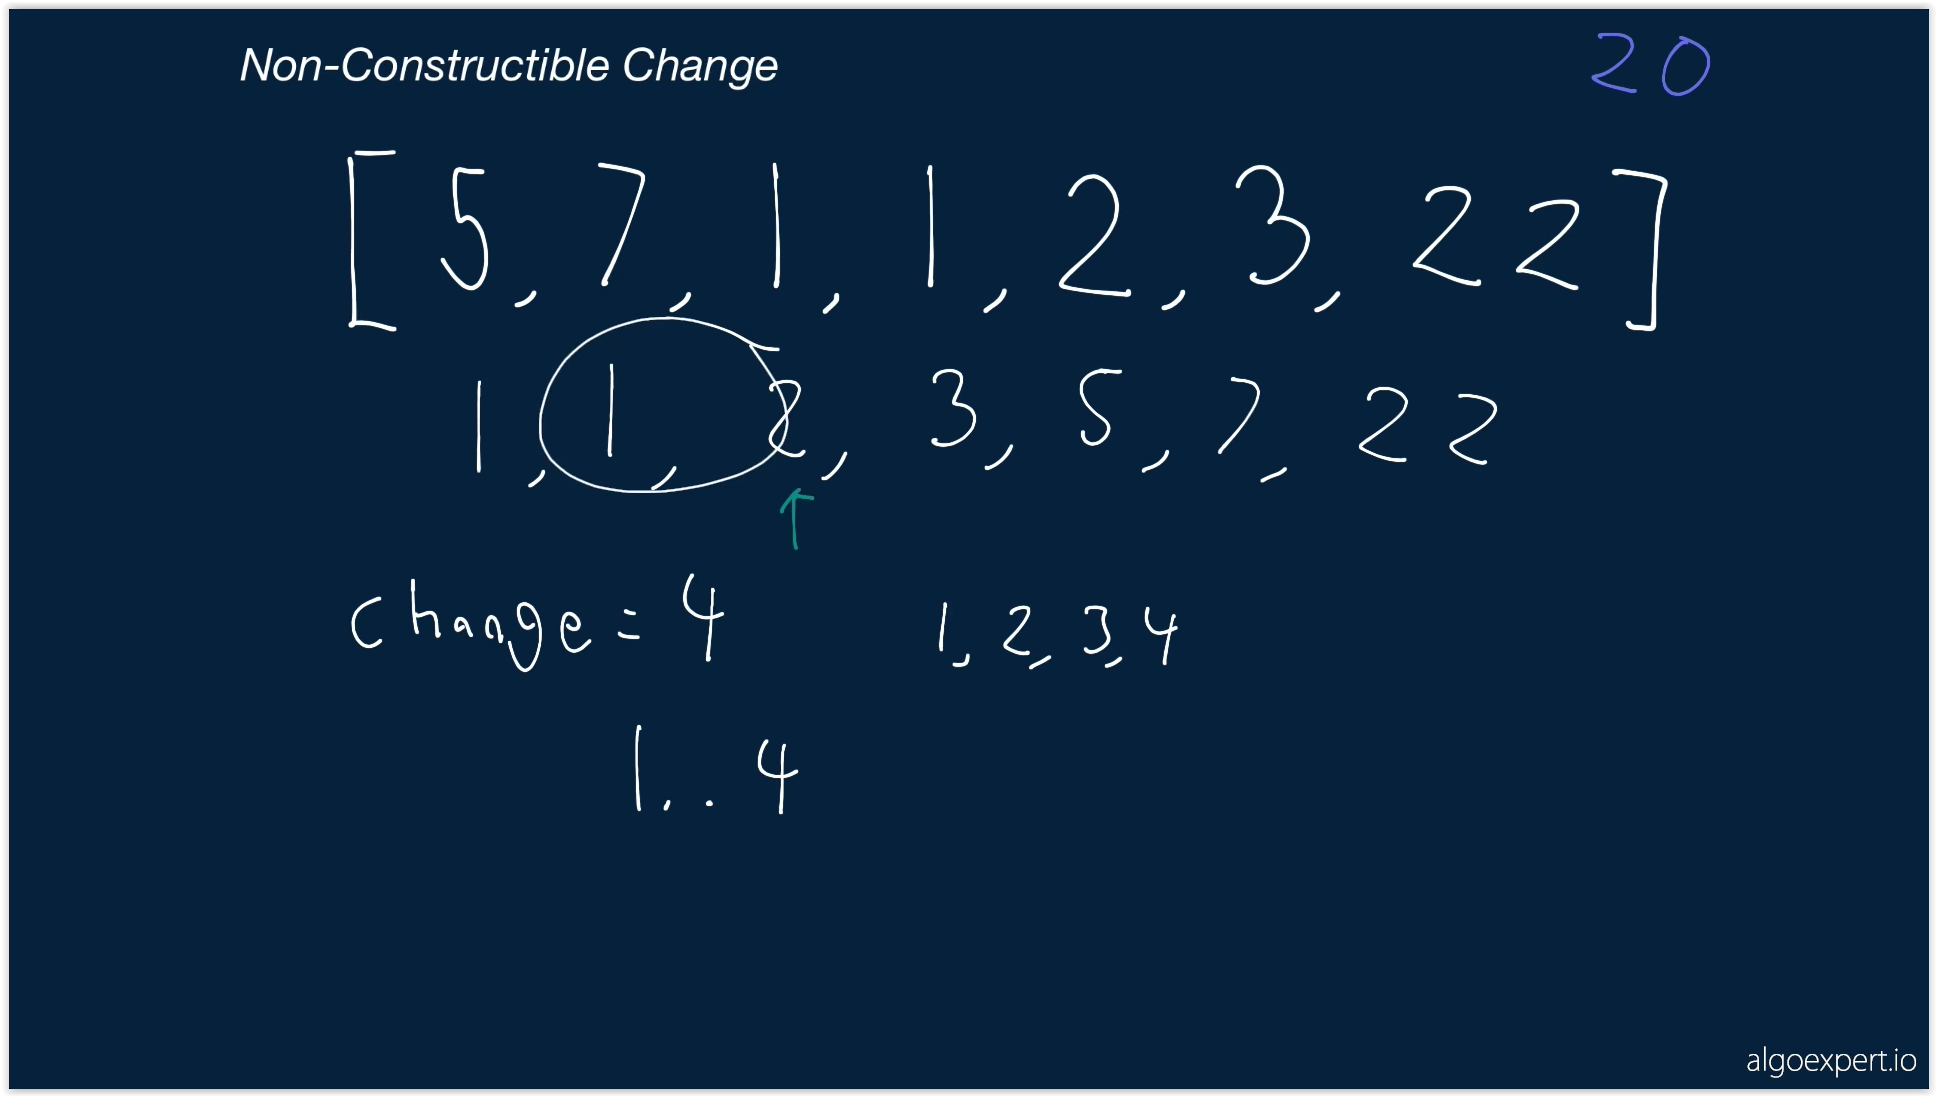 Non-Constructible Change 20
[5, 7, 1, 1, 2, 3, 22]
1, 1, 2, 3, 5, 7, 22
change = 4 1, 2, 3, 4
1 . . 4
algoexpert.io